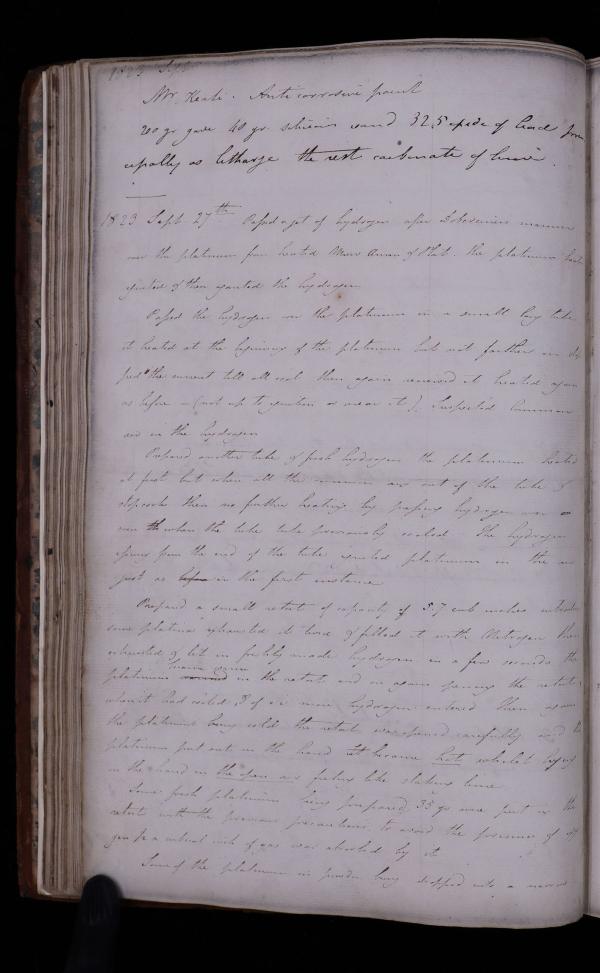 1823 Sept
Mr. Keate. Anti corrosive paint
200 gr gave 40 gr. silicious sand 32.5 oxide of lead prin
cipally as litharge the rest carbonate of lime.
1823 Sept 27th Passed a jet of hydrogen after Dobereiners manner
over the platinum from heated Mur Amm of Plat. the platinum
ignited & then ignited the hydrogen
Passed the hydrogen over the platinum in a small long tube
it heated at the beginning of the platinum but not farther on
the current till all cool then again renewed it heated again
as before - (not up to ignition or near it). Suspected common
air in the hydrogen
Prepared another tube & fresh hydrogen the platinum heated
at first but when all the common air out of the tube &
stopcocks then no further heating by passing hydrogen over
even when the tube previously cooled The hydrogen
from the end of the tube ignited platinum in the air
just as before in the first instance
Prepared a small retort of capacity of 5.7 cub inches introduced
some platina exhausted it twice & filled it with Nitrogen then
exhausted & let in freshly made hydrogen in a few seconds the
platinum became warm in the retort and on again opening the retort
when it had cooled of more hydrogen entered then again
the platinum being cold the retort was opened carefully and the
platinum put out in the hand it became hot whilst lying
in the hand in the open air feeling like slaking lime
Some fresh platinum being prepared 35 gr were put in the
retort with the previous precautions to avoid the presence of
a cubical inch of gas was absorbed by it
Some of the platinum in powder being dropped into a narrow